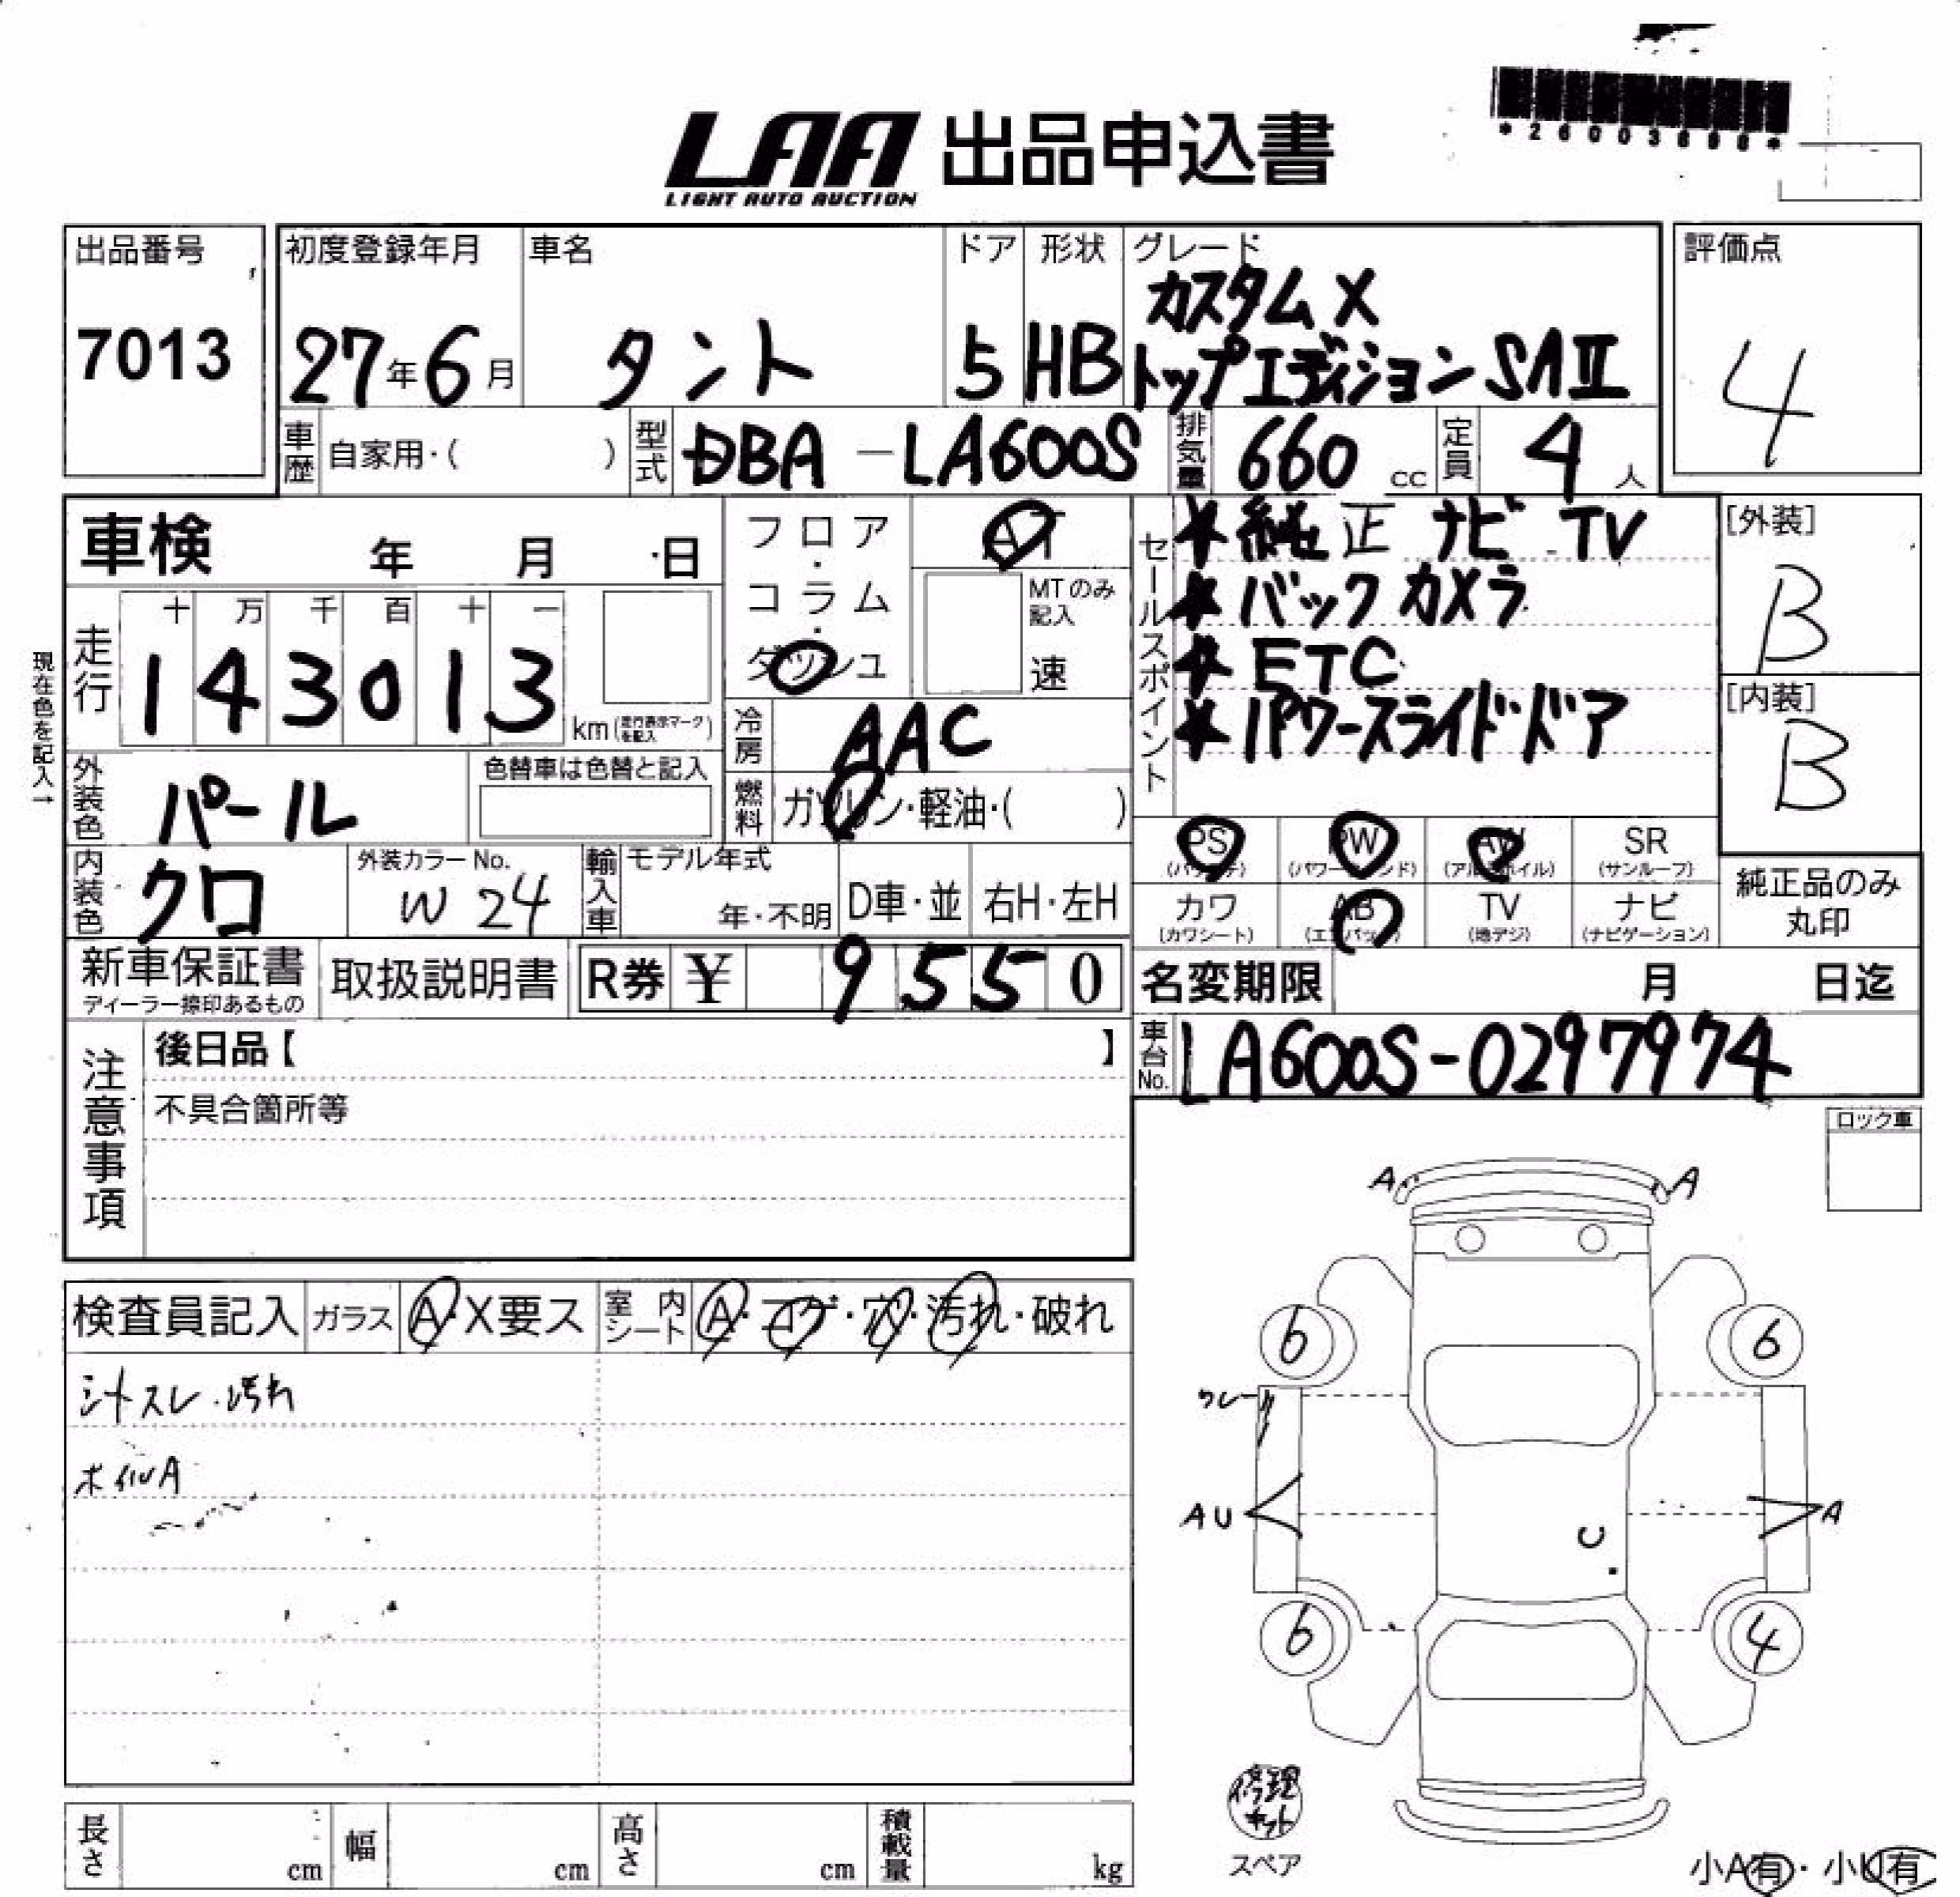 *26003898*
LAA 出品申込書
LIGHT AUTO AUCTION
出品番号
7013
初度登録年月
27年6月
車名
タント
ドア
5
形状
HB
グレード
カスタムX
トップエディションSAⅡ
評価点
4
車歴
自家用・( )
型式
DBA-LA600S
排気量
660 cc
定員
4人
車検 年 月 日
フロア・コラム・ダッシュ
AT
MTのみ記入
速
セールスポイント
★純正ナビTV
★バックカメラ
★ETC
★パワースライドドア
[外装]
B
[内装]
B
現在色を記入→
走行
十 万 千 百 十 一
1 4 3 0 1 3 km(走行表示マークを記入)
冷房
AAC
燃料
ガソリン・軽油・( )
外装色
パール
色替車は色替と記入
内装色
クロ
外装カラーNo.
W24
輸入車
モデル年式
年・不明
D車・並
右H・左H
PS
PW
AW
SR
(パワステ)
(パワーウインド)
(アルミホイル)
(サンルーフ)
カワ
AB
TV
ナビ
(カワシート)
(エアバック)
(地デジ)
(ナビゲーション)
純正品のみ
丸印
新車保証書
ディーラー捺印あるもの
取扱説明書
R券 ¥ 9550
名変期限 月 日迄
車台No.
LA600S-0297974
注意事項
後日品【 】
不具合箇所等
ロック車
検査員記入
ガラス
A・X要ス
室内シート
A・コゲ・穴・汚れ・破れ
シートスレ・汚れ
ホイルA
A A
6 6
ワレ
AU A
C
6 4
修理キット
スペア
長さ cm
幅 cm
高さ cm
積載量 kg
小A有・小U有